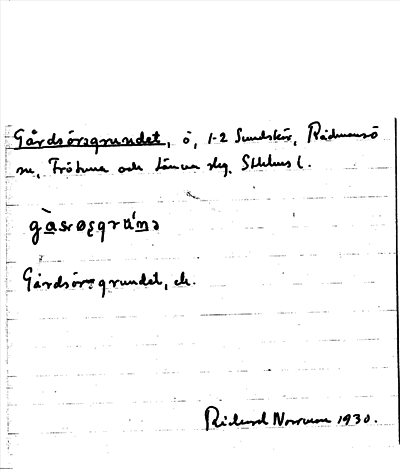 Gårdsörsgrundet, ö, 1-2 Sundskär, Rådmansö
sn, Frötuna och Länna slg, Sthlms l.
Gårdsörsgrundet, ek.
Rickard Norrman 1930.